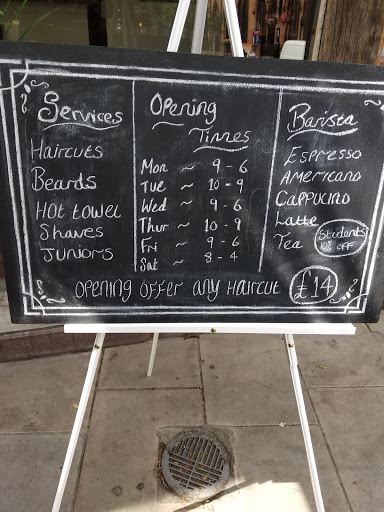 Services
Haircuts
Beards
Hot towel
Shaves
Juniors
Opening
Times
Mon ~ 9 - 6
Tue ~ 10 - 9
Wed ~ 9 - 6
Thur ~ 10 - 9
Fri ~ 9 - 6
Sat ~ 8 - 4
Barista
Espresso
Americano
Cappucino
Latte
Tea
Students
10% OFF
Opening offer any Haircut £14